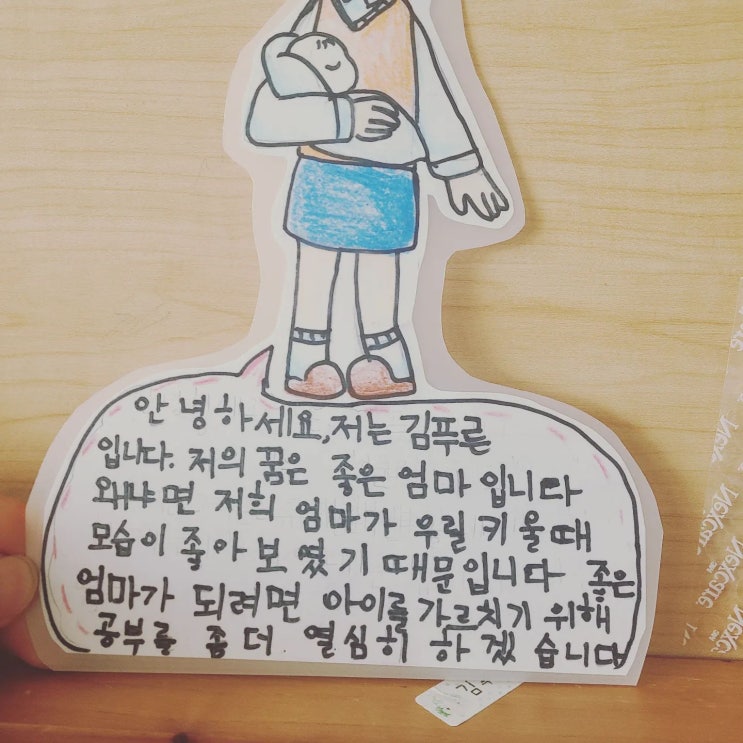 안녕하세요, 저는 김푸른
입니다. 저의 꿈은 좋은 엄마 입니다
왜냐면 저희 엄마가 우릴 키울때
모습이 좋아 보였기 때문입니다 좋은
엄마가 되려면 아이를 가르치기 위해
공부를 좀 더 열심히 하겠습니다
Nexcare
Nexcare